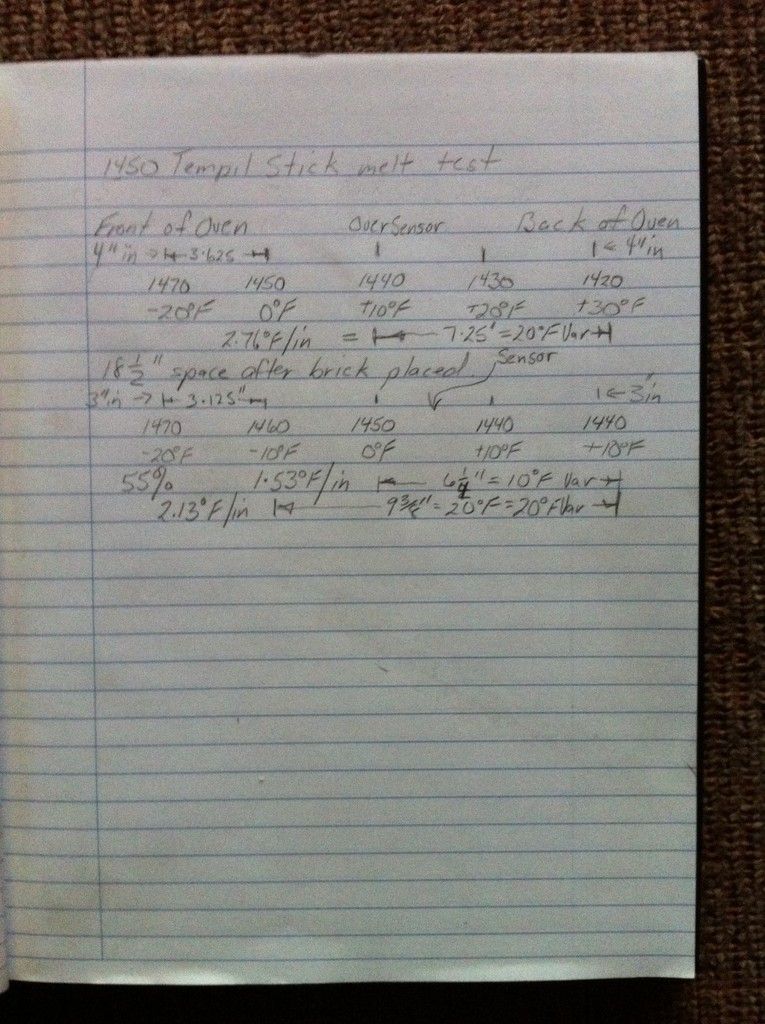 1450 Tempil Stick melt test
Front of Oven Over Sensor Back of Oven
4" in → 3.625 ← 4" in
1470 1450 1440 1430 1420
-20°F 0°F +10°F +20°F +30°F
2.76°F/in = 7.25" = 20°F Var
18 1/2" space after brick placed. Sensor
3" in → 3.125" ← 3" in
1470 1460 1450 1440 1440
-20°F -10°F 0°F +10°F +10°F
55% 1.53°F/in 6 1/4" = 10°F Var
2.13°F/in 9 3/8" = 20°F = 20°F Var